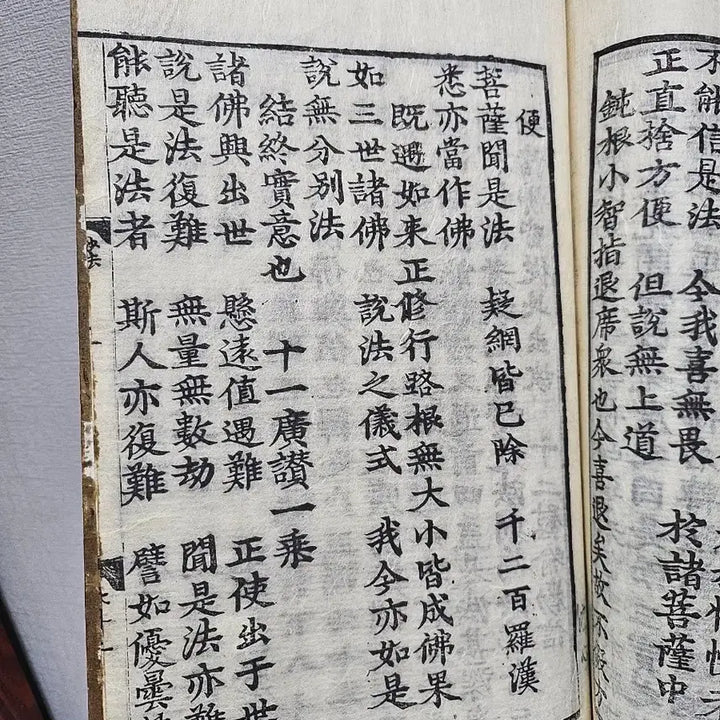 不能信是法 今我喜無畏 於諸菩薩中
正直捨方便 但說無上道
鈍根小智指退席衆也今喜退矣故不
便
菩薩聞是法 疑網皆已除 千二百羅漢
悉亦當作佛
既遇如來正修行路根無大小皆成佛果
如三世諸佛 說法之儀式 我今亦如是
說無分別法
結終實意也 十一廣讃一乘
諸佛興出世 懸遠值遇難 正使出于世
說是法復難 無量無數劫 聞是法亦難
能聽是法者 斯人亦復難 譬如優曇